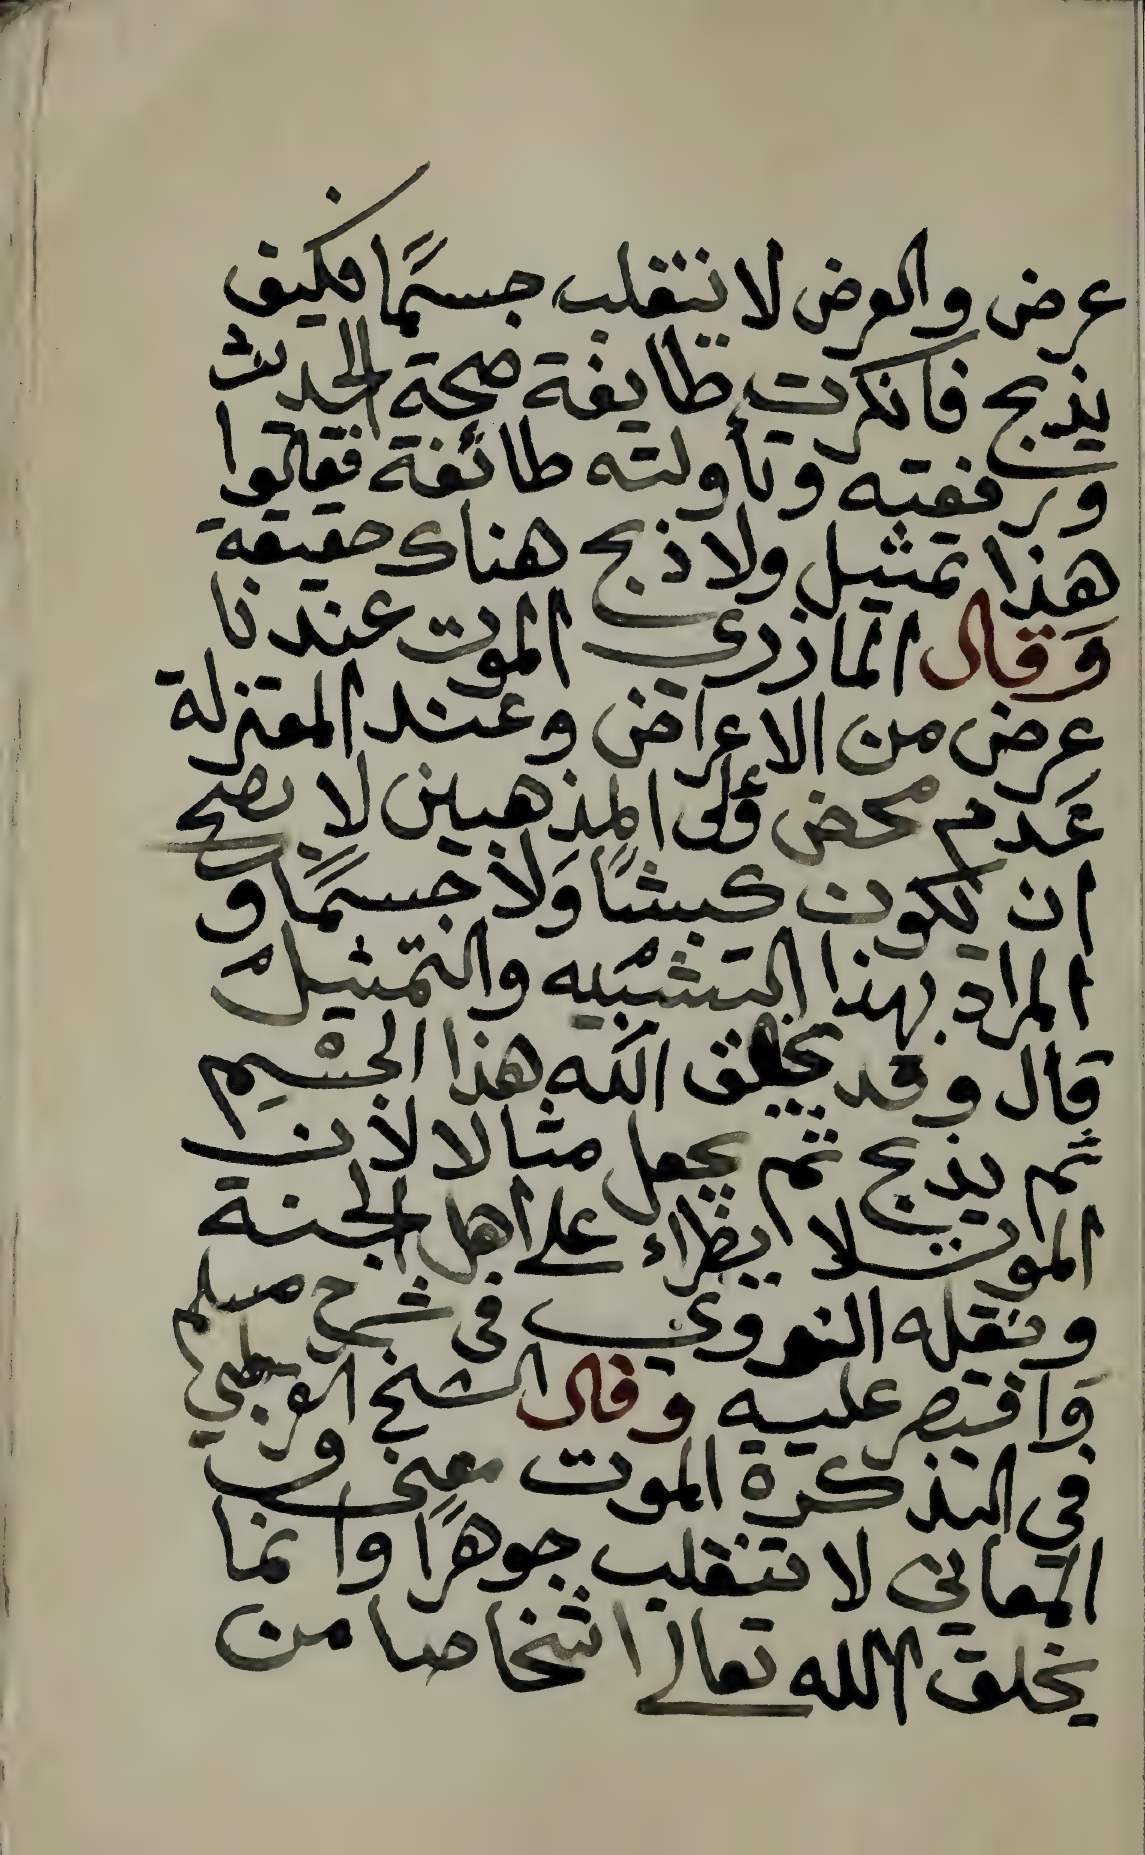 عرض والعرض لا ينقلب جسمًا فكيف
يذبح فأنكرت طايفة صحة الحديث
ورفعته وتأولته طائفة فقالوا
هذا تمثيل ولا ذبح هناك حقيقة
وَقال المازري الموت عندنا
عرض من الاعراض وعند المعتزلة
عَدم محض وُلى المذهبين لا يصح
ان يكون كبشًا وَلا جسمًا و
المراد بهذا التشبيه والتمثيل
قال وقد يخلق الله هذا الجسيم
ثم يذبح ثم يجعل مثالا لأن
الموت لا يطراء على اهل الجنة
ونقله النووي فى شرح مسلم
وَاقتصر عليه وقال الشيخ القرطبي
في التذكرة الموت معنى و
المعانى لا تنقلب جوهرًا وانما
يخلق الله تعالى اشخاصا من